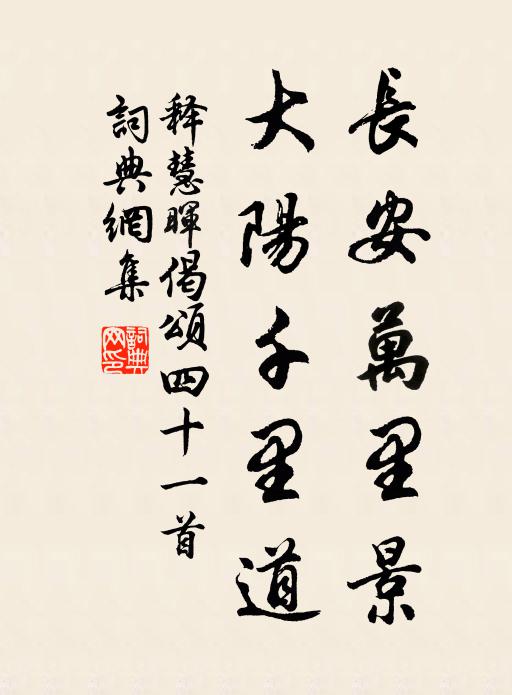 長安萬里景
大陽千里道
释慧暉偈頌四十一首
詞典網集
詞典网印